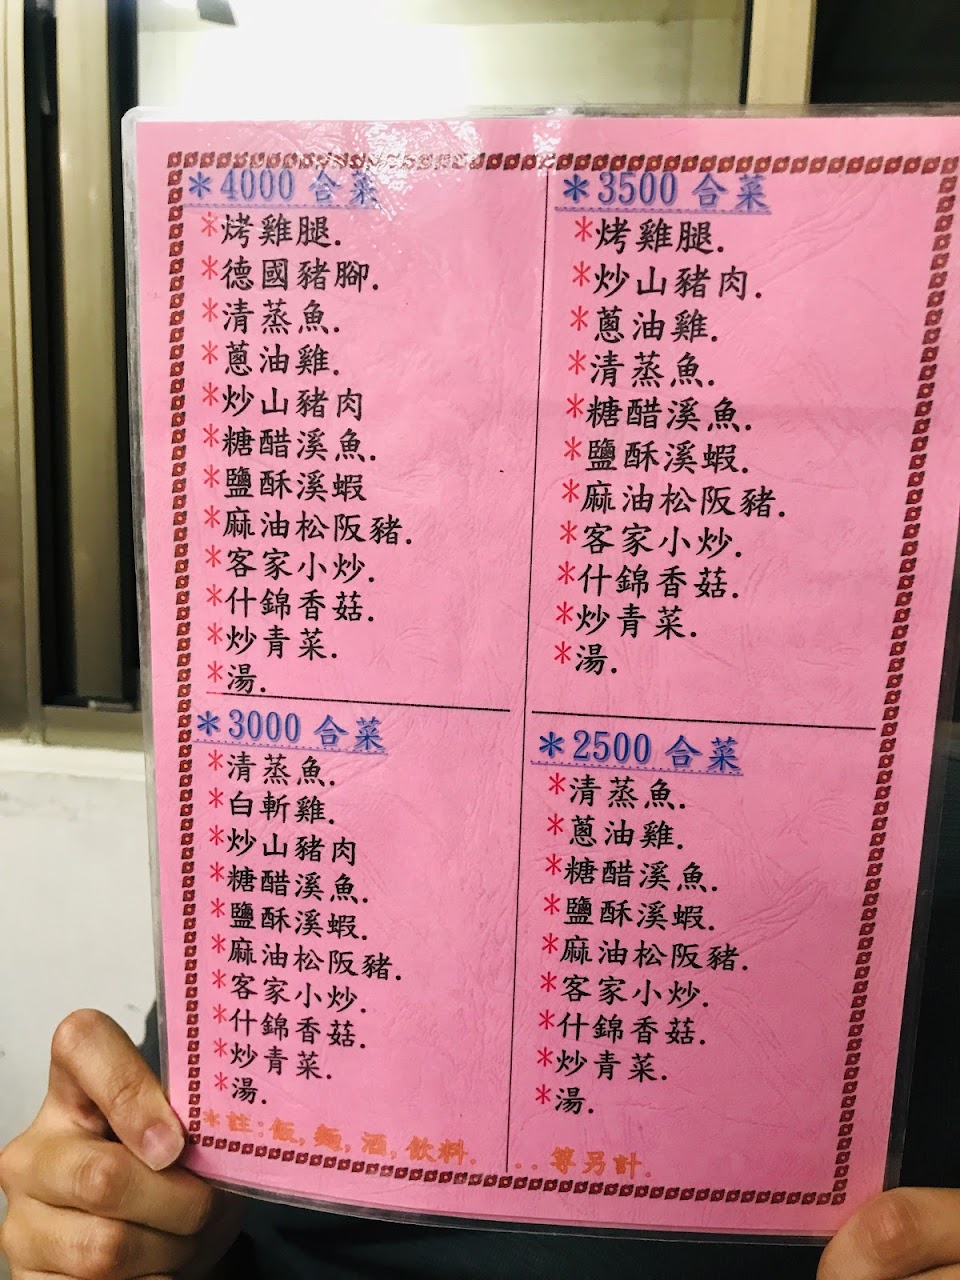 *4000 合菜
*烤雞腿.
*德國豬腳.
*清蒸魚.
*蔥油雞.
*炒山豬肉
*糖醋溪魚.
*鹽酥溪蝦
*麻油松阪豬.
*客家小炒.
*什錦香菇.
*炒青菜.
*湯.
*3500 合菜
*烤雞腿.
*炒山豬肉.
*蔥油雞.
*清蒸魚.
*糖醋溪魚.
*鹽酥溪蝦.
*麻油松阪豬.
*客家小炒.
*什錦香菇.
*炒青菜.
*湯.
*3000 合菜
*清蒸魚.
*白斬雞.
*炒山豬肉
*糖醋溪魚.
*鹽酥溪蝦.
*麻油松阪豬.
*客家小炒.
*什錦香菇.
*炒青菜.
*湯.
*2500 合菜
*清蒸魚.
*蔥油雞.
*糖醋溪魚.
*鹽酥溪蝦.
*麻油松阪豬.
*客家小炒.
*什錦香菇.
*炒青菜.
*湯.
*註:飯,麵,酒,飲料. . . 等另計.